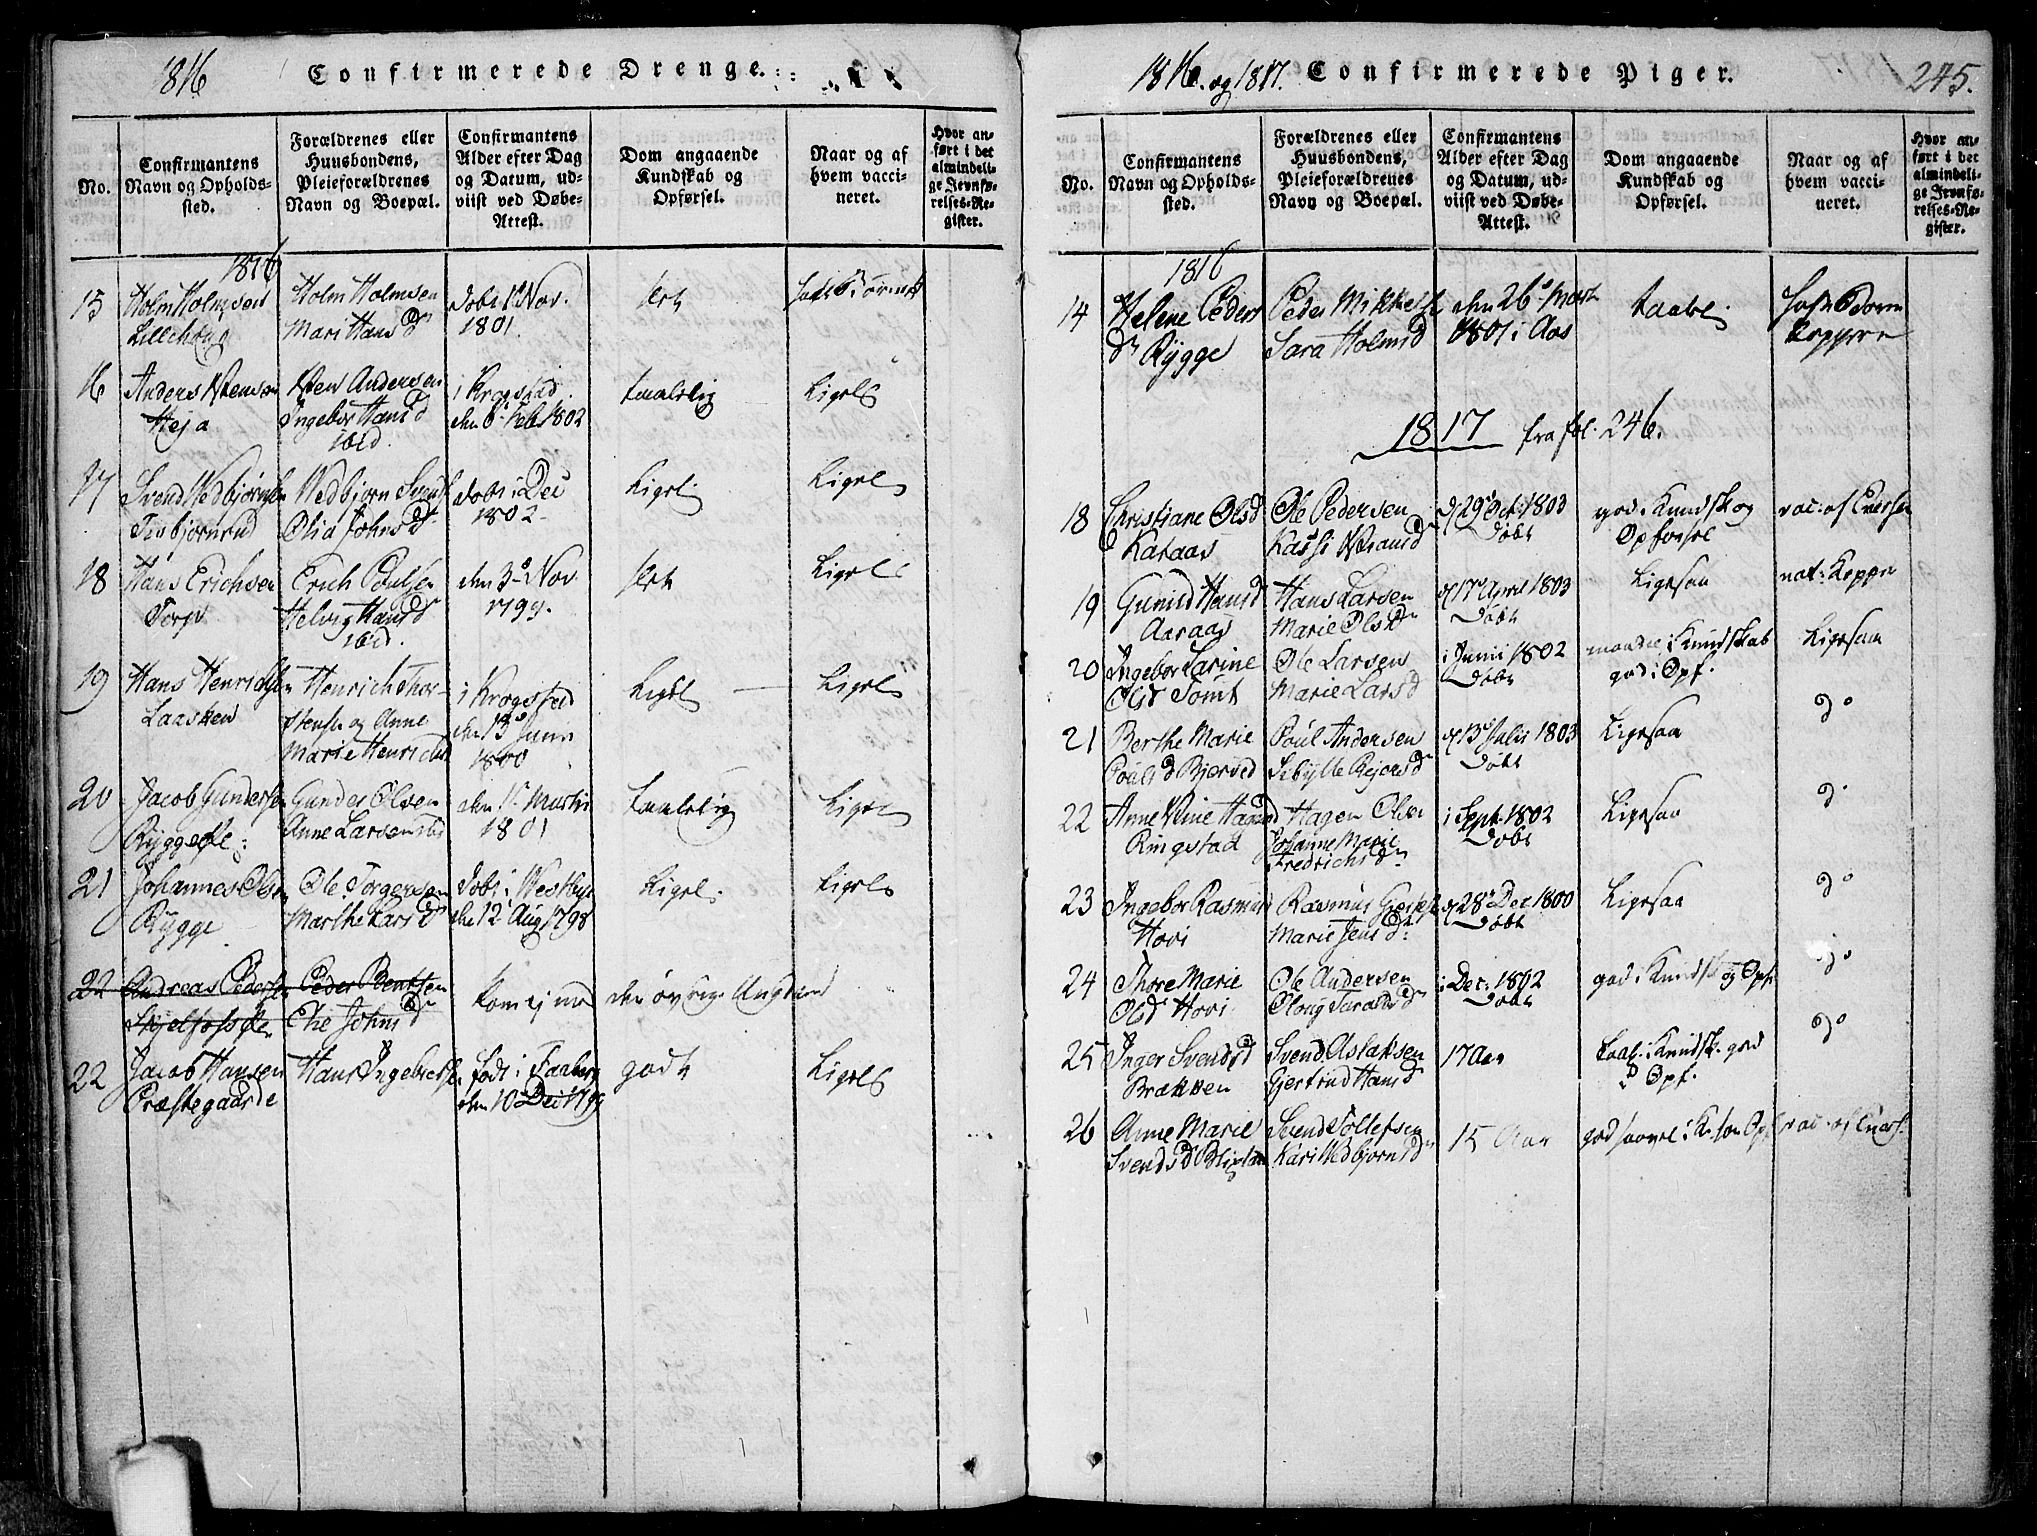 1816
Confirmerede Drenge.
No.
Confirmantens
Navn og Opholds-
sted.
Forældrenes eller
Huusbondens,
Pleieforældrenes
Navn og Boepæl.
Confirmantens
Alder efter Dag
og Datum, ud-
viist ved Døbe-
Attest.
Dom angaaende
Kundskab og
Opførsel.
Naar og af
hvem vacci-
neret.
Hvor an-
ført i det
almindeli-
ge Jevnfø-
relses-Re-
gister.
1816
15
Holm Holmsen
Holm Holmsen
Mari Hans D
Døbt 1 Nov.
1801.
slet
16
Anders
Heja
Andersen
Ingebor Hans D
ibid.
i Krogstad
den 6 Feb 1802
taalelig
Ligel
17
Svend Vedbjørnsen
Tisbjørnrud
Vedbjørn Svends
Olia Johns D
Døbt i Dec
1802
Ligel
Ligel
18
Hans Erichsen
Torp
Erich Poulsen
Helvig Hans D
ibid.
den 3 Nov
1799.
slet
Ligel
19
Hans Henrichsen
Laasken
Henrich Thor-
stensen og Anne
Marie Henrichs
i Krogstad
den 13 Juni
1800
Ligel
Ligel
20
Jacob Gundersen
Ryggeøe
Gunder Olsen
Anne Lars
den 1 Martii
1801
taalelig
Ligel
21
Johannes Ols
Rygge
Ole Torgersen
Marthe Lars D
Døbt i Westbye
den 12 Aug 1798
Ligel
Ligel
22
Andreas Pedersen
Peder Bentsen
Else Johns D
kom ej med den øvrige Ungdom
22
Jacob Hansen
Præstegaarde
Hans Ingebretsen
født i Faaberg
den 10 Dec 1799
godt
Ligel
1816. og 1817. Confirmerede Piger.
245.
No.
Confirmantens
Navn og Opholds-
sted.
Forældrenes eller
Huusbondens,
Pleieforældrenes
Navn og Boepæl.
Confirmantens
Alder efter Dag
og Datum, ud-
viist ved Døbe-
Attest.
Dom angaaende
Kundskab og
Opførsel.
Naar og af
hvem vacci-
neret.
Hvor an-
ført i det
almindeli-
ge Jevnfø-
relses-Re-
gister.
1816
14
Helene Peders
Dr Rygge
Peder Mikkels
Sara Holms D
den 26 Mart
1801 i Aas
1817 fra fol. 246.
18
Christiane Olsd
Kataas
Ole Pedersen
D 29 Oct. 1803
Døbt
god i Kundsk og
Opførsel
vac: af Iversen
19
Gunild Hansd
Aaraas
Hans Larsen
Marie Olsdr
D 17 April 1803
Døbt
Ligesaa
nat: Kopper
20
Ingebor Larine
Olsd Tomt
Ole Larsen
Marie Larsd
i Junii 1802
Døbt
maadel i Kundskab
god i Opf.
Ligesaa
21
Berthe Marie
Poulsd Bjerved
Poul Andersen
Sibylle Rejersd
D 13 Julii 1803
Døbt
Ligesaa
do
22
Anne Hagensd
Ringstad
Hagen Olsen
Johanne Marie
Fredrichsdr
i Sept. 1802
Døbt
Ligesaa
do
23
Ingebor Rasmus
Hovi
Rasmus
Marie Jensdr
D 28 Dec 1800
Døbt
Ligesaa
do
24
Thore Marie
Olsd Hovi
Ole Andersen
i Dec. 1802
Døbt
god i Kundsk og Opf
do
25
Inger Svendsd
Brækken
Svend Aslaksen
Gjertrud Hansd
17 Aar
taal. i Kundsk. god
i Opf.
do
26
Anne Marie
Svendsd
Svend Tollefsen
Kari Vedbjørnsd
15 Aar
god saavel i K. som Opf
vac. af Ivers.